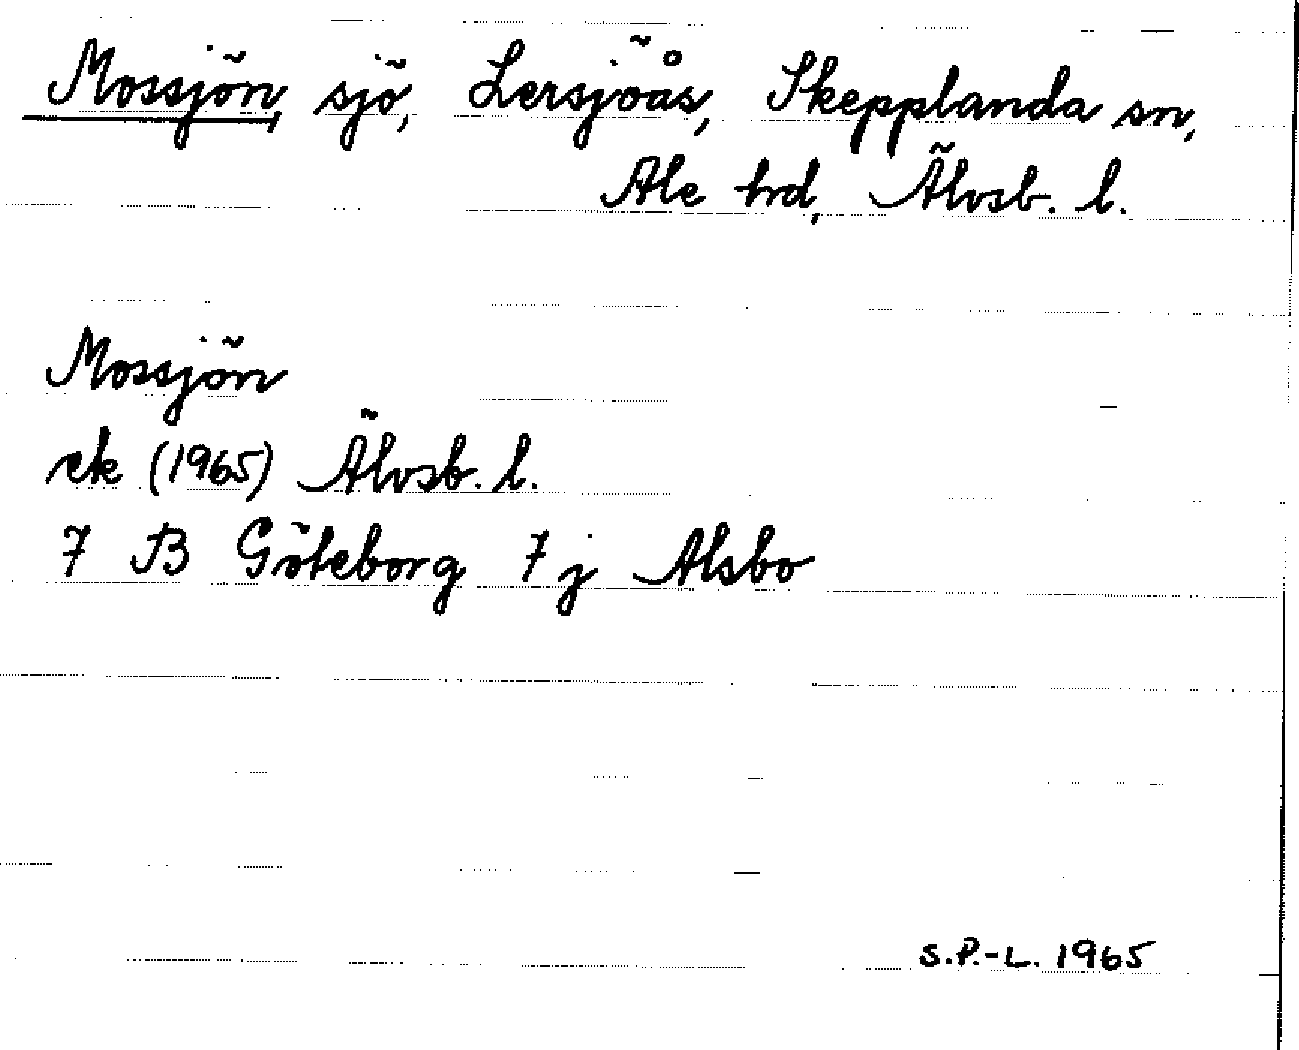 Mossjön, sjö, Lersjöås, Skepplanda sn,
Ale hrd, Älvsb. l.
Mossjön
ek (1965) Älvsb. l.
7 B Göteborg 7 j Alsbo
S.P.-L. 1965